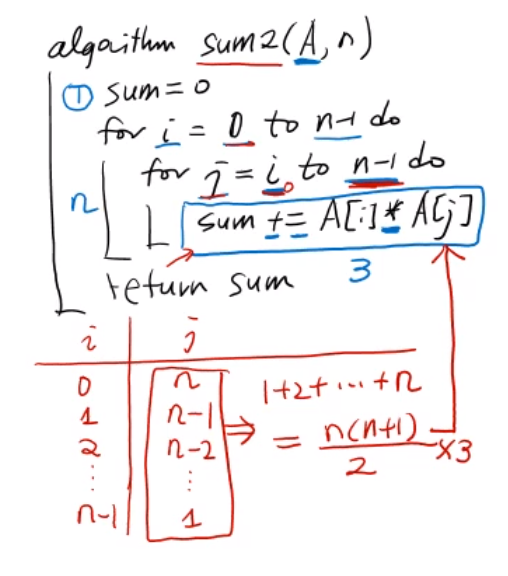 algorithm sum2(A, n)
① sum = 0
for i = 0 to n-1 do
n
for j = i to n-1 do
sum += A[i] * A[j]
return sum
3
i j
0 n
1 n-1
2 n-2
⋮ ⋮
n-1 1
⇒ 1+2+⋯+n
= n(n+1)/2 ×3